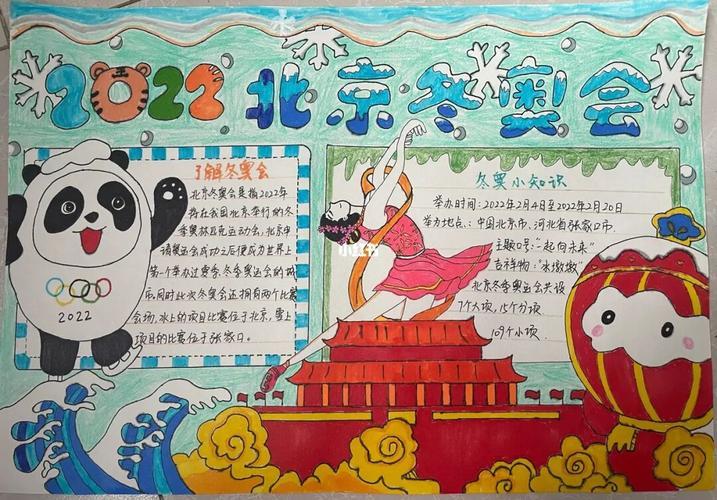 2022北京冬奥会
了解冬奥会
北京冬奥会是指2022年
将在我国北京举行的冬
季奥林匹克运动会,北京申
请奥运会成功之后便成为世界上
第一个举办过夏季、冬季奥运会的城
市,同时此次冬奥会还拥有两个比赛
会场,冰上的项目比赛位于北京,雪上
项目的比赛位于张家口。
2022
小红书
冬奥小知识
举办时间:2022年2月4日至2022年2月20日
举办地点:中国北京市、河北省张家口市.
主题口号:"一起向未来"
吉祥物:"冰墩墩"
北京冬季奥运会共设
7个大项,15个分项
109个小项.